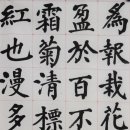 為報栽花
盈於百不
霜菊清標
紅也漫多